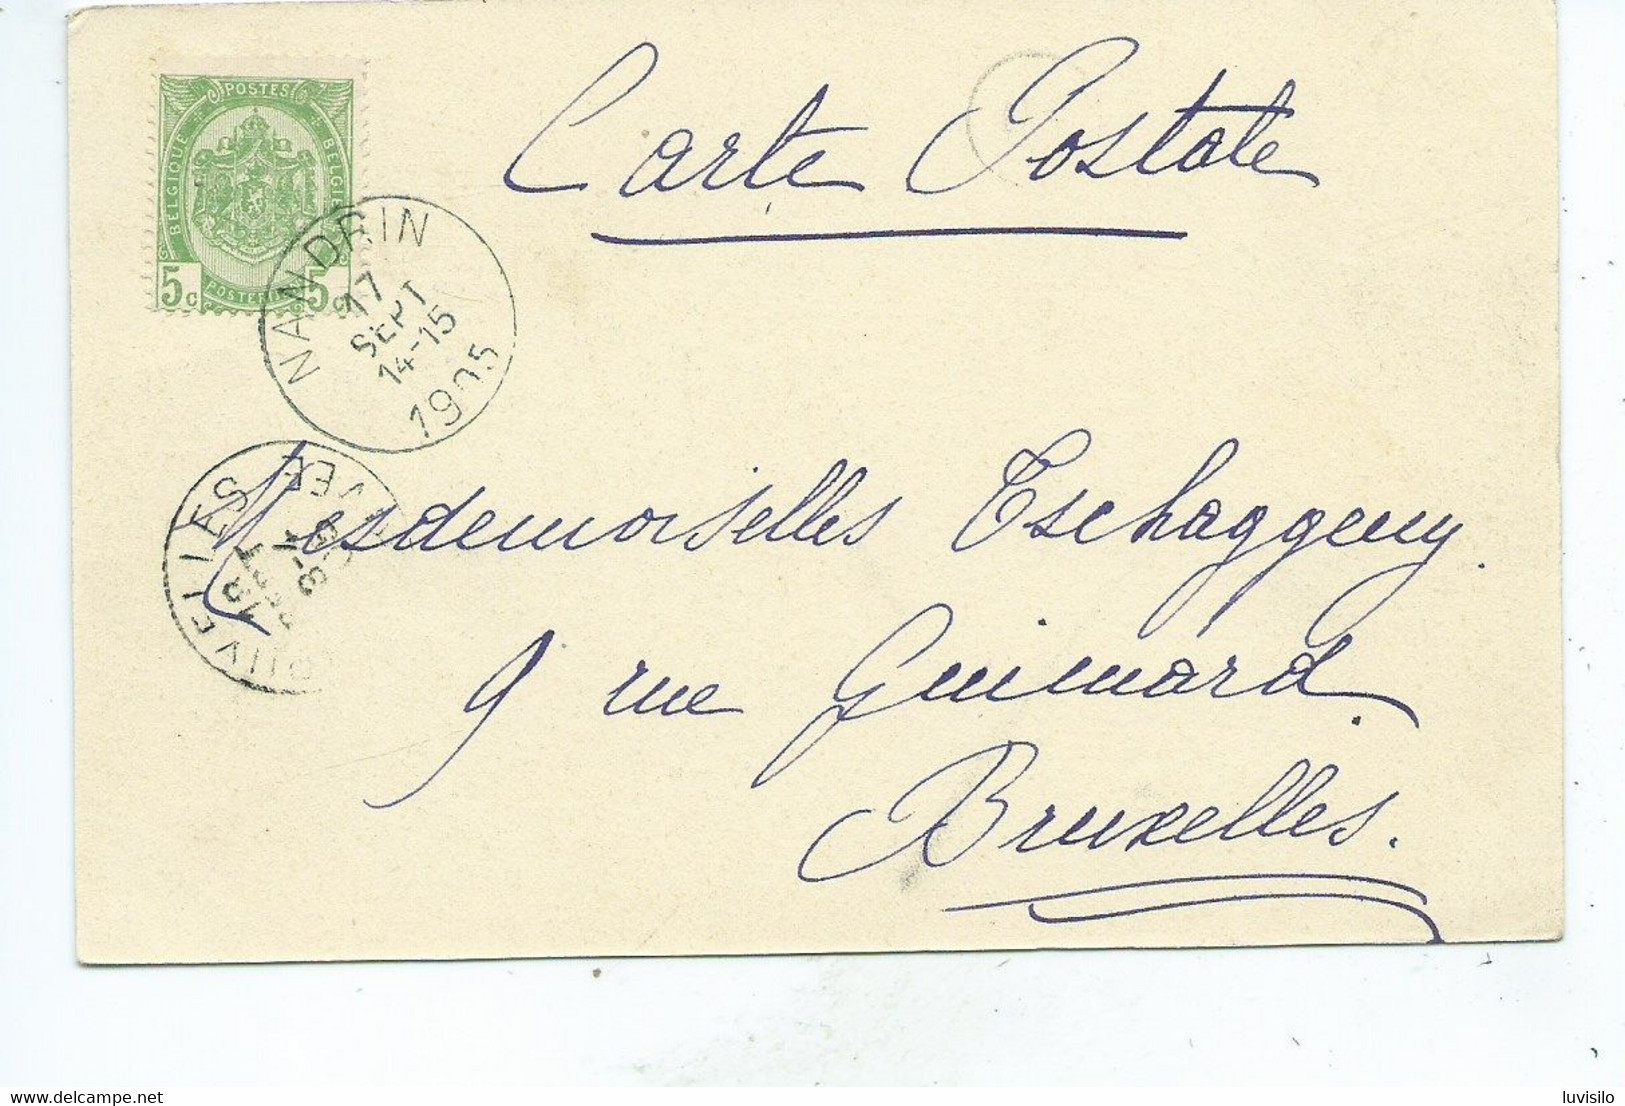 Carte Postale
POSTES
BELGIQUE
BELGIE
5c 5c
NANDRIN
17
SEPT
14-15
1905
Mesdemoiselles Tschaggeny.
9 rue Guimard
Bruxelles.
delcampe.net
luvisilo